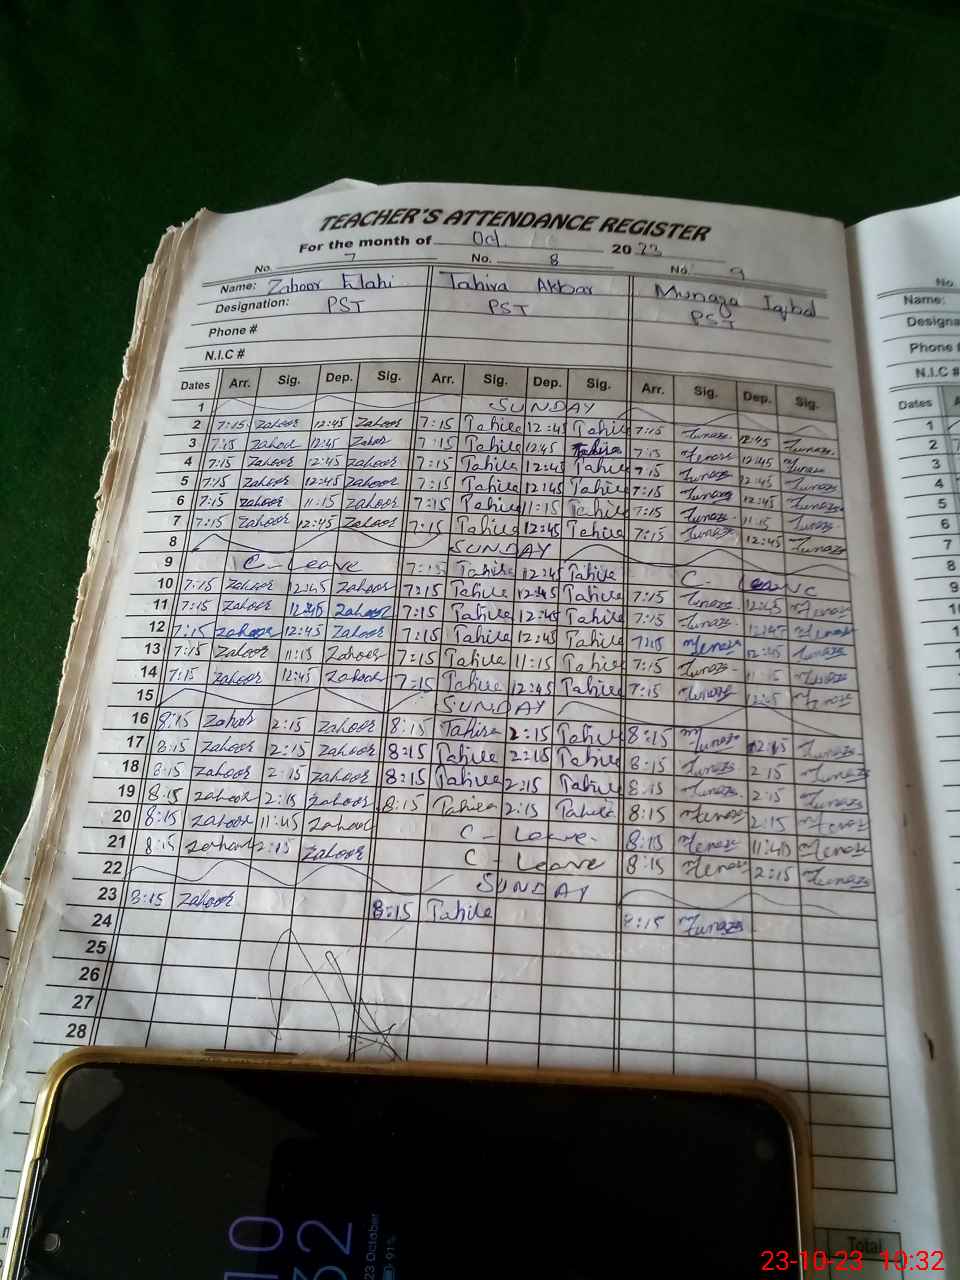 TEACHER'S ATTENDANCE REGISTER
For the month of Oct. 2023
No. 7 No. 8 No. 9
Name: Zahoor Elahi Tahira Akbar Munaza Iqbal
Designation: PST PST PST
Phone #
N.I.C #
Dates Arr. Sig. Dep. Sig. Arr. Sig. Dep. Sig. Arr. Sig. Dep. Sig.
1 SUNDAY
2 7:15 Zahoor 12:45 Zahoor 7:15 Tahira 12:45 Tahira 7:15 Munaza 12:45 Munaza
3 7:15 Zahoor 12:45 Zahoor 7:15 Tahira 12:45 Tahira 7:15 Munaza 12:45 Munaza
4 7:15 Zahoor 12:45 Zahoor 7:15 Tahira 12:45 Tahira 7:15 Munaza 12:45 Munaza
5 7:15 Zahoor 12:45 Zahoor 7:15 Tahira 12:45 Tahira 7:15 Munaza 12:45 Munaza
6 7:15 Zahoor 11:15 Zahoor 7:15 Tahira 11:15 Tahira 7:15 Munaza 11:15 Munaza
7 7:15 Zahoor 12:45 Zahoor 7:15 Tahira 12:45 Tahira 7:15 Munaza 12:45 Munaza
8 SUNDAY
9 C- Leave 7:15 Tahira 12:45 Tahira C- Leave
10 7:15 Zahoor 12:45 Zahoor 7:15 Tahira 12:45 Tahira 7:15 Munaza 12:45 Munaza
11 7:15 Zahoor 12:45 Zahoor 7:15 Tahira 12:45 Tahira 7:15 Munaza 12:45 Munaza
12 7:15 Zahoor 12:45 Zahoor 7:15 Tahira 12:45 Tahira 7:15 Munaza 12:45 Munaza
13 7:15 Zahoor 11:15 Zahoor 7:15 Tahira 11:15 Tahira 7:15 Munaza 11:15 Munaza
14 7:15 Zahoor 12:45 Zahoor 7:15 Tahira 12:45 Tahira 7:15 Munaza 12:45 Munaza
15 SUNDAY
16 8:15 Zahoor 2:15 Zahoor 8:15 Tahira 2:15 Tahira 8:15 Munaza 2:15 Munaza
17 8:15 Zahoor 2:15 Zahoor 8:15 Tahira 2:15 Tahira 8:15 Munaza 2:15 Munaza
18 8:15 Zahoor 2:15 Zahoor 8:15 Tahira 2:15 Tahira 8:15 Munaza 2:15 Munaza
19 8:15 Zahoor 2:15 Zahoor 8:15 Tahira 2:15 Tahira 8:15 Munaza 2:15 Munaza
20 8:15 Zahoor 11:45 Zahoor C - Leave 8:15 Munaza 11:45 Munaza
21 8:15 Zahoor 2:15 Zahoor C - Leave 8:15 Munaza 2:15 Munaza
22 SUNDAY
23 8:15 Zahoor 8:15 Tahira 8:15 Munaza
24
25
26
27
28
No.
Name:
Designa
Phone #
N.I.C #
Dates
1
2
3
4
5
6
7
8
9
Total
10
32
23 October
91%
23-10-23 10:32